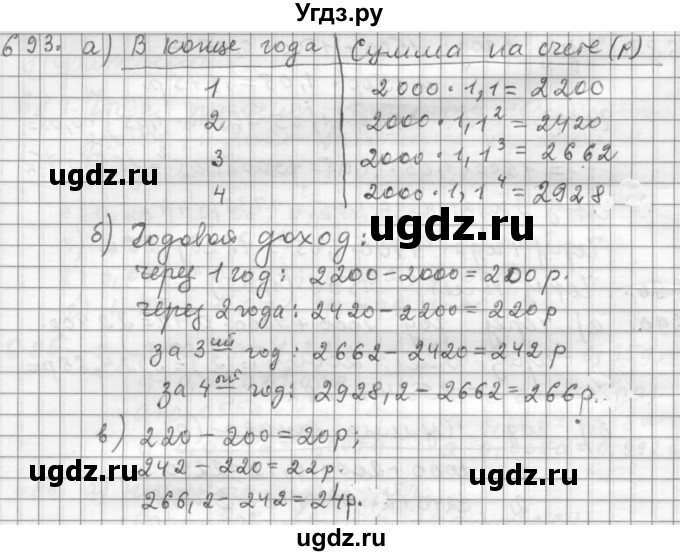 Угдз.ру
693. а) В конце года | Сумма на счете (р)
1 2000 · 1,1 = 2200
2 2000 · 1,1² = 2420
3 2000 · 1,1³ = 2662
4 2000 · 1,1⁴ = 2928
ugdz.ru ugdz.ru
ugdz.ru
б) Годовой доход:
через 1 год: 2200 – 2000 = 200 р.
через 2 года: 2420 – 2200 = 220 р
за 3ий год: 2662 – 2420 = 242 р
за 4ый год: 2928,2 – 2662 = 266 р.
в) 220 – 200 = 20 р;
242 – 220 = 22 р.
ugdz.ru ugdz.ru
266,2 – 242 = 24 р.
ugdz.ru